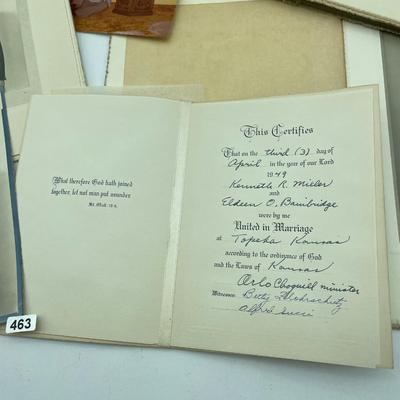 What therefore God hath joined
together, let not man put asunder
St. Matt. 19-6.
463
This Certifies
That on the third (3) day of
April in the year of our Lord
1949
Kenneth R. Miller
and
Eldeen O. Bainbridge
were by me
United in Marriage
at Topeka Kansas
according to the ordinance of God
and the Laws of Kansas
Orlo Choguill minister
Witnesses: Betty